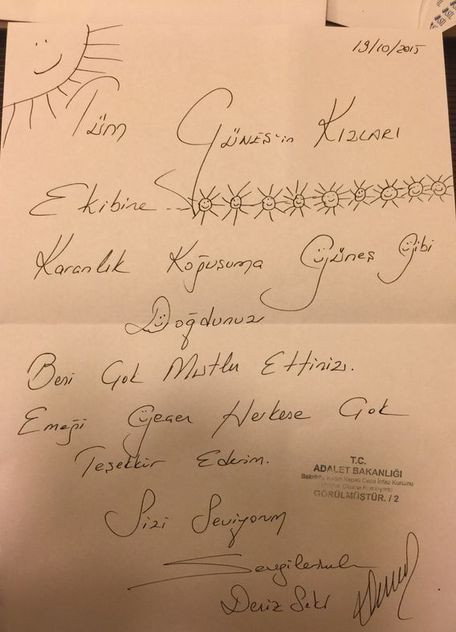 19/10/2015
Tüm GÜNEŞ'in KIZLARI
Ekibine
Karanlık Koğuşuma Güneş Gibi
Doğdunuz
Beni Çok Mutlu Ettiniz.
Emeği Geçen Herkese Çok
Teşekkür Ederim.
T.C.
ADALET BAKANLIĞI
Bakırköy Kadın Kapalı Ceza İnfaz Kurumu
GÖRÜLMÜŞTÜR. / 2
Sizi Seviyorum
Sevgilerimle
Deniz Seki